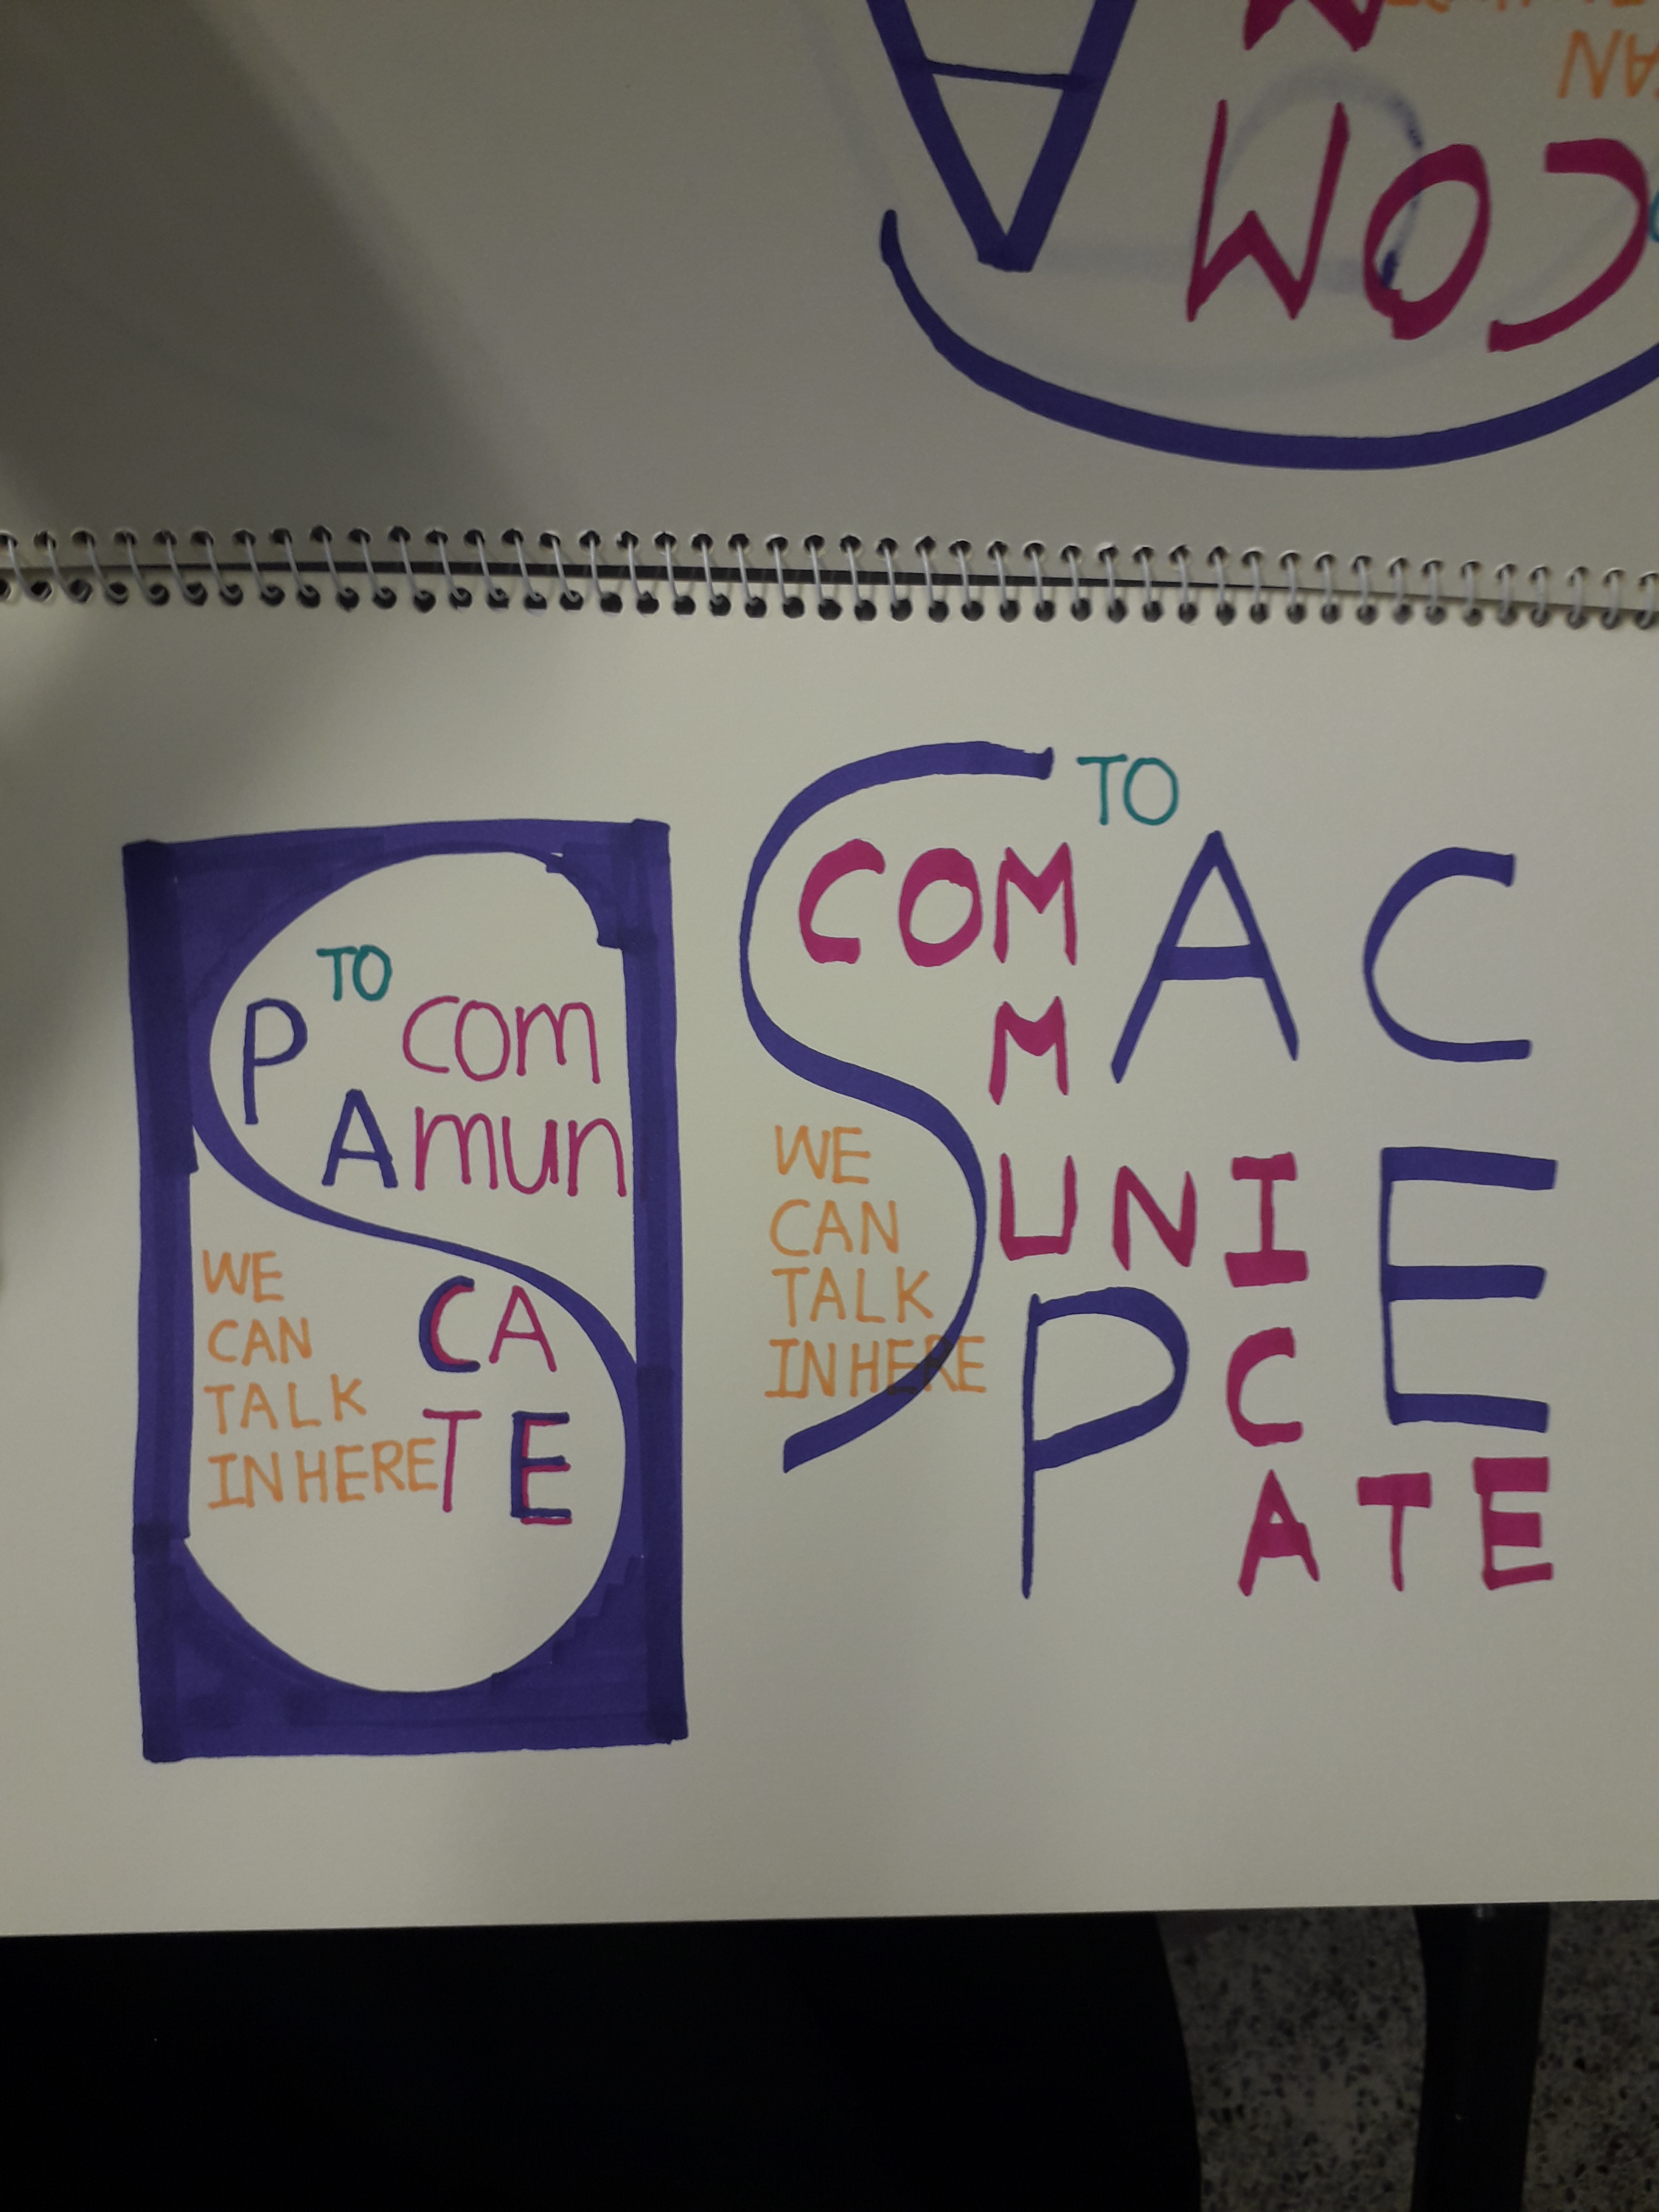 A
COM
S
TO
P com
A mun
CA
TE
WE
CAN
TALK
IN HERE
S
TO
COM A C
M
UNI E
P C
ATE
WE
CAN
TALK
IN HERE